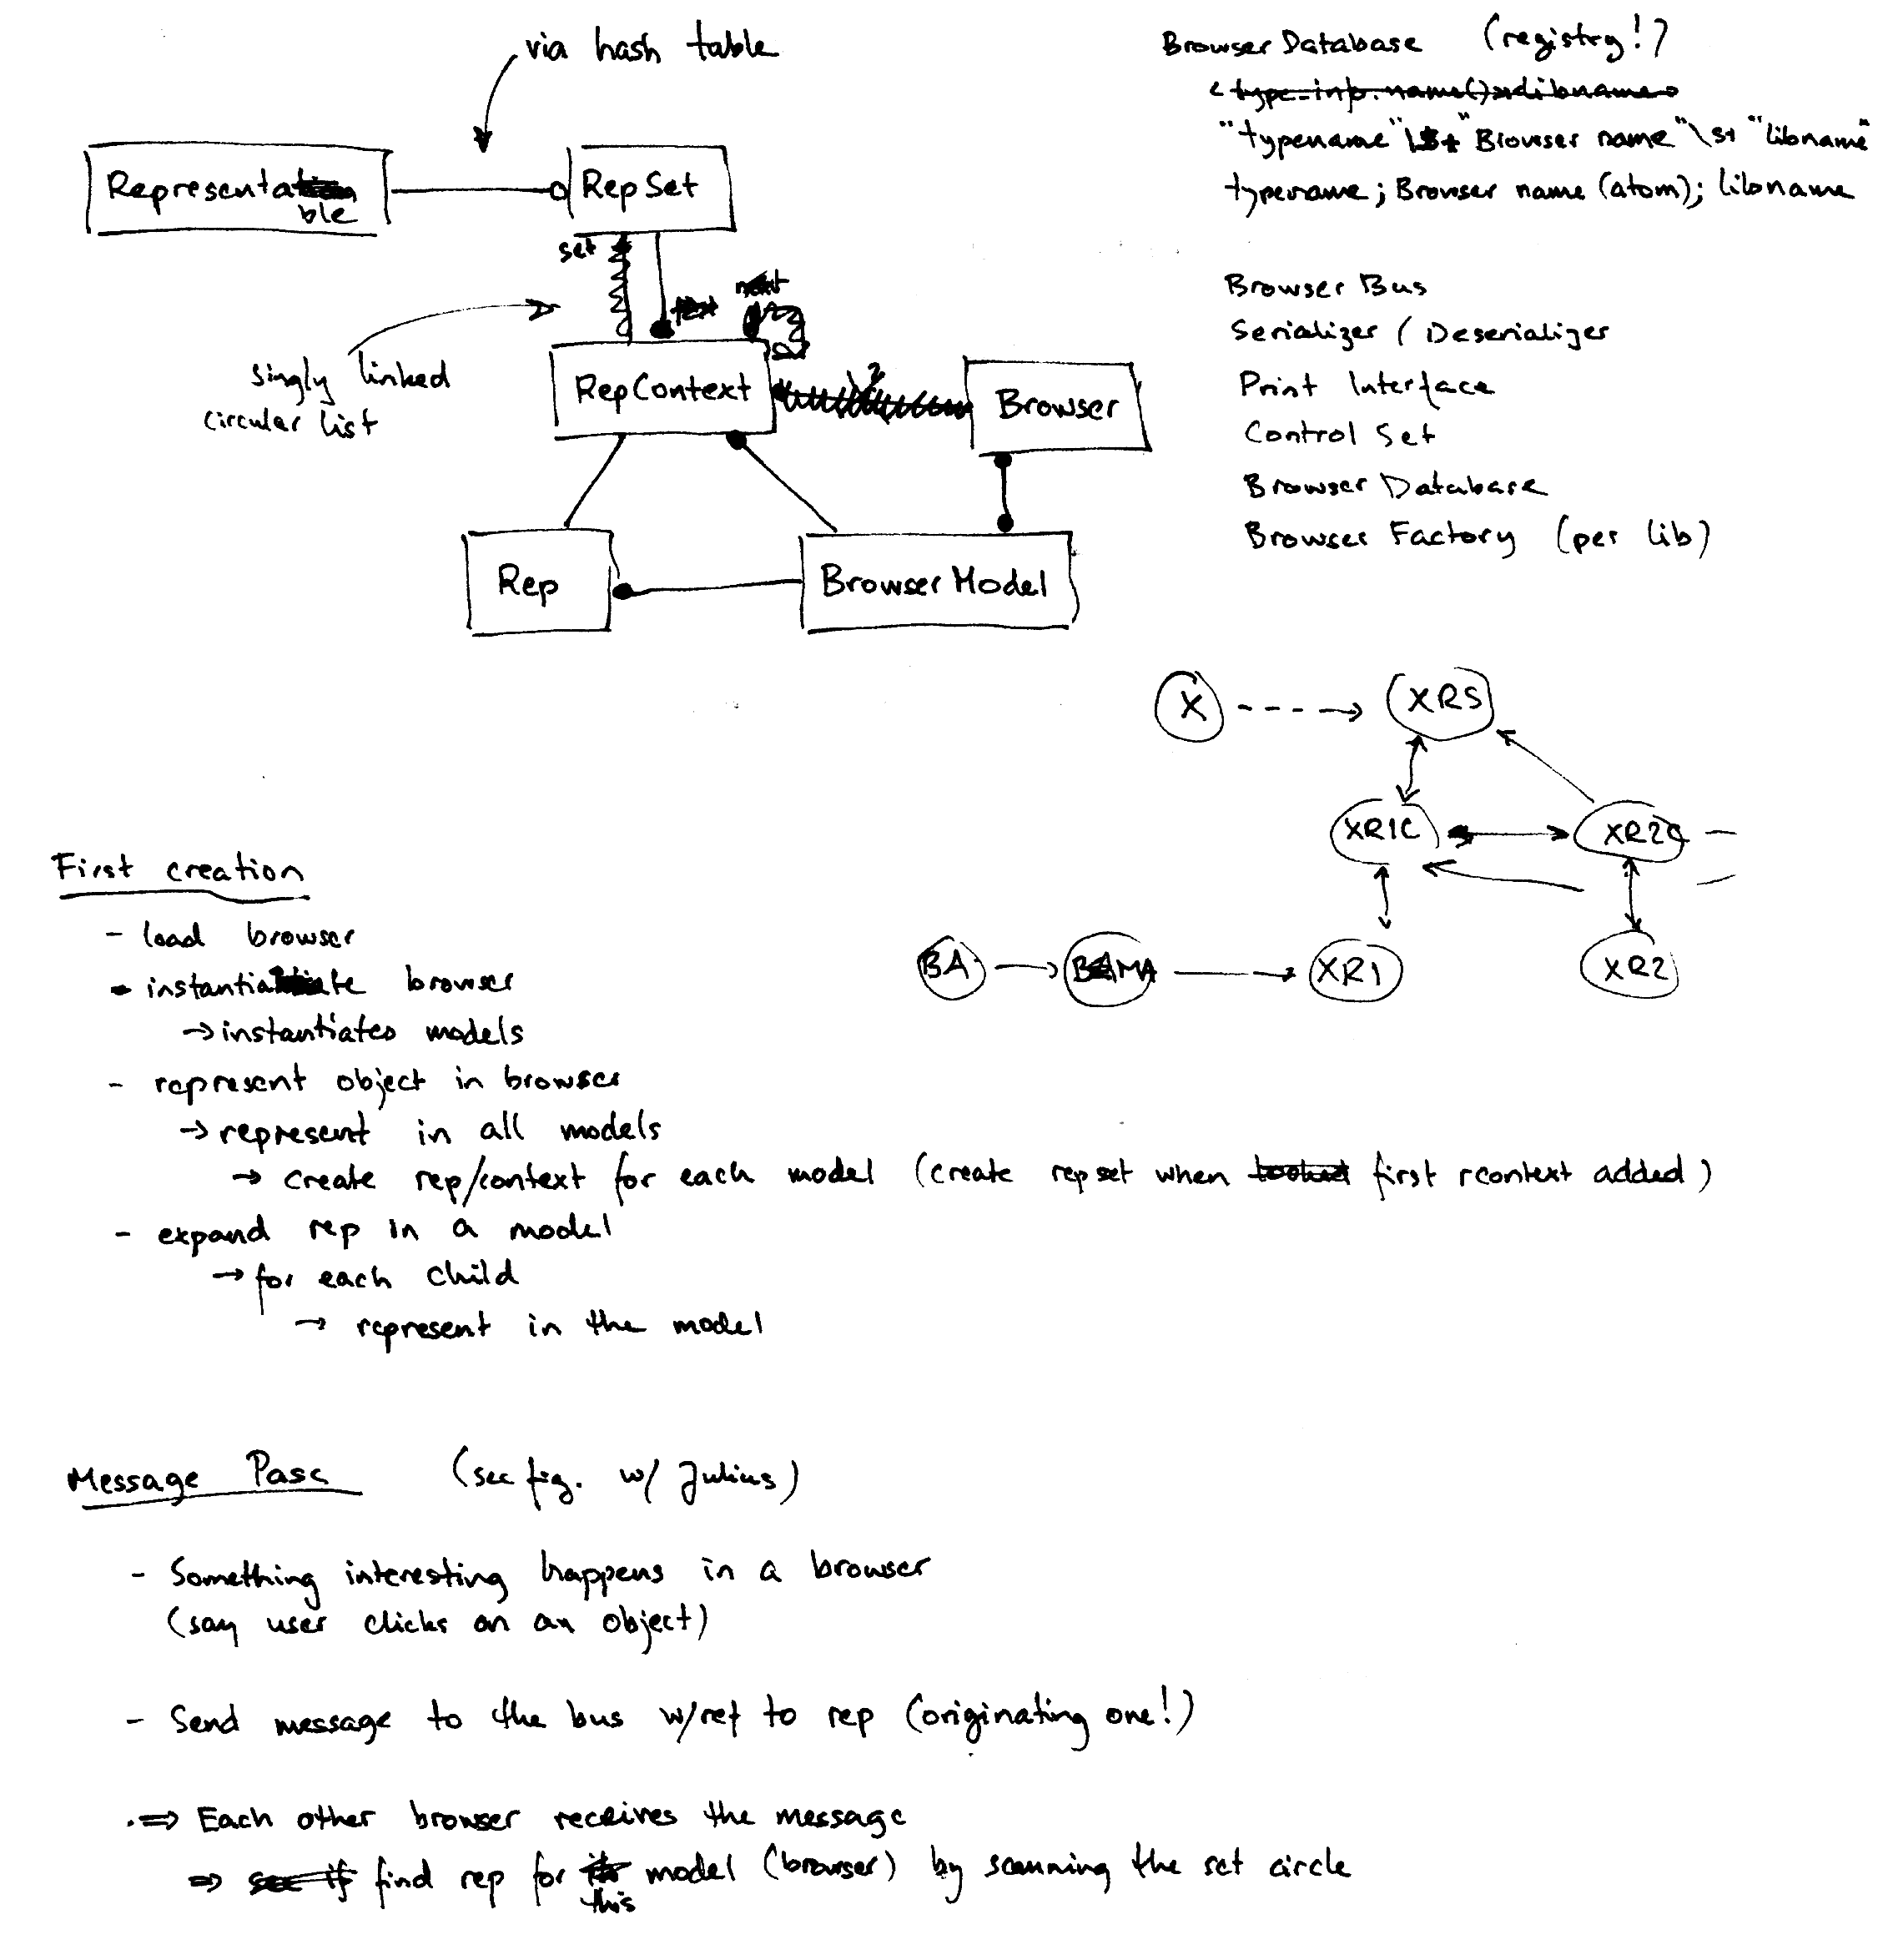 via hash table
Representable
RepSet
set
next
singly linked
circular list
RepContext
2
Browser
Rep
BrowserModel
Browser Database (registry!)
< type_info.name()>
"typename" \s+ "Browser name" \s+ "libname"
typename; Browser name (atom); libname
Browser Bus
Serializer / Deserializer
Print Interface
Control Set
Browser Database
Browser Factory (per lib)
X
XRS
XR1C
XR2C
BA
BAMA
XR1
XR2
First creation
- load browser
- instantiate browser
→ instantiates models
- represent object in browser
→ represent in all models
→ create rep/context for each model (create repset when first rcontext added)
- expand rep in a model
→ for each child
→ represent in the model
Message Pass (see fig. w/ Julius)
- Something interesting happens in a browser
(say user clicks on an object)
- Send message to the bus w/ref to rep (originating one!)
⇒ Each other browser receives the message
⇒ see if find rep for its this model (browser) by scanning the set circle